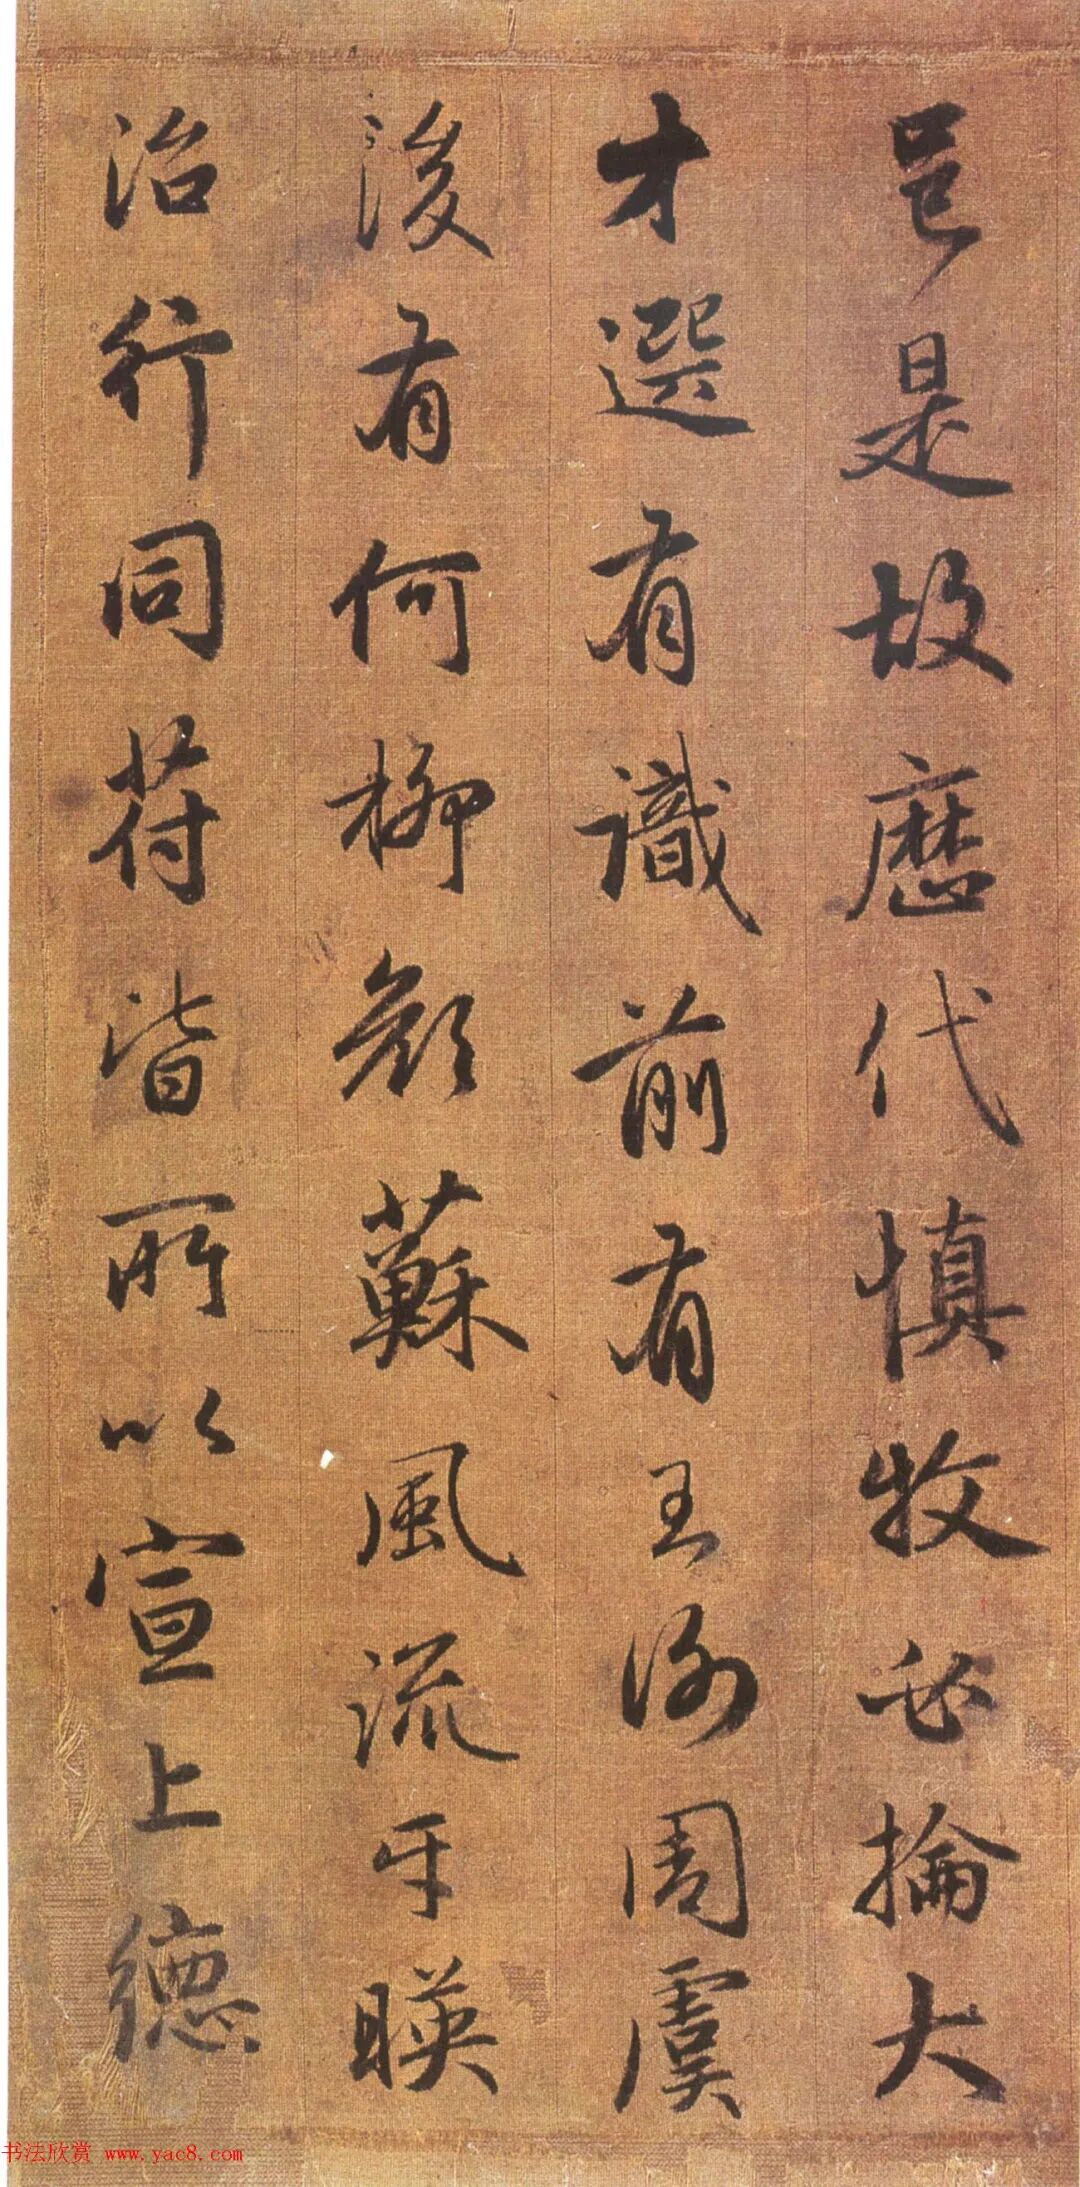 邑是故歷代慎牧必掄大
才選有識前有王謝周虞
後有何柳顏蘇風流互暎
治行同符皆所以宣上德
书法欣赏 www.yac8.com